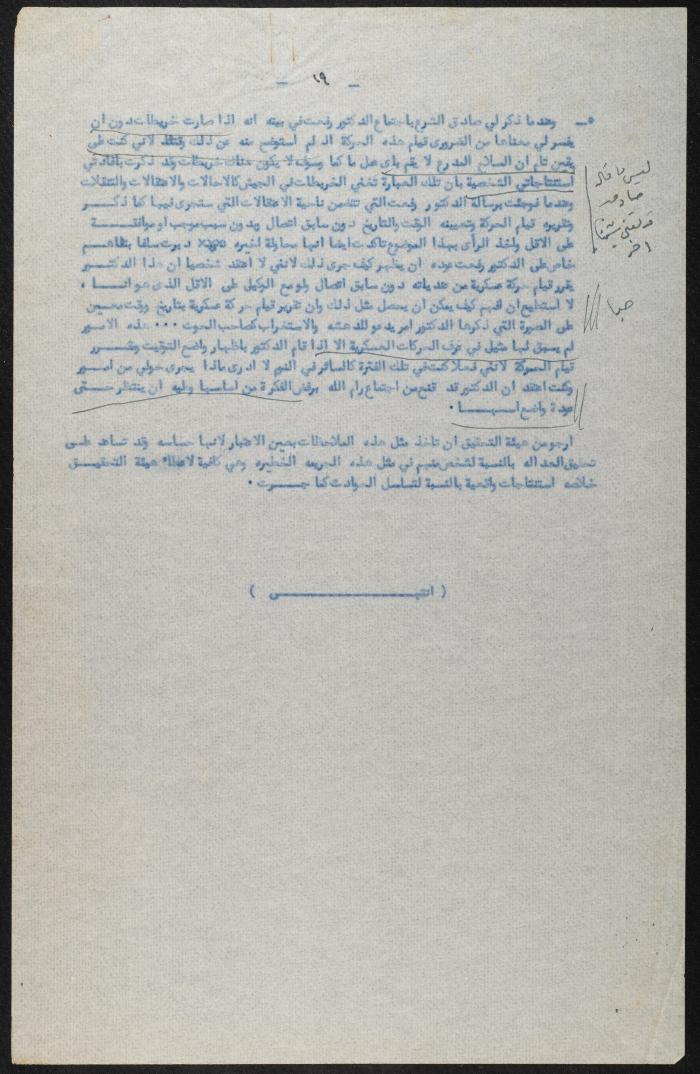 - ١٩ -
٥- وعندما ذكر لي صادق الشرع باجتماع الدكتور رفعت في بيته انه اذا صارت خربطات دون ان
يفسر لي معناها من الضرورى قيام هذه الحركة الـ لم استوضح منه عن ذلك لانني كنت على
يقين تام ان السلاح المدرع لا يقم باى عمل ما كما وسوف لا يكون هناك خربطات وقد ذكرت بافادتي
استنتاجاتي الشخصية بان تلك العبارة تخفي الخربطات في الجيش كالاحالات والاعتقالات والتنقلات
وعندما فوجئت برسالة الدكتور رفعت التي تتضمن ناحية الاعتقالات التي ستجرى فيها كما ذكـــر
وتقريره قيام الحركة وتعيينه الوقت والتاريخ دون سابق اتصال وبدون سبب موجب او موافقـــة
على الاقل واخذ الرأى بهذا الموضوع تاكدت ايضا انها محاولة اخيره دبرت سلفا بتفاهم
خاص على الدكتور رفعت عوده ان يظهر كيف جرى ذلك لانني لا اعتقد شخصيا ان هذا الدكتـــور
يقرر قيام حركة عسكرية من عندياته دون سابق اتصال ولو مع الوكيل على الاقل الذى هو انـــا ،
لا استطيع ان افهم كيف يمكن ان يحصل مثل ذلك وان تقرير قيام حركة عسكرية بتاريخ ووقت معـــين
على الصورة التي ذكرها الدكتور امر يدعو للدهشه والاستغراب كصاحب الحوت ٠٠٠ هذه الامـــور
لم يسبق لها مثيل في عرف الحركات العسكرية الا اذا قام الدكتور باظهار واضح التوقيت ومقـــرر
قيام الحركة لانني فعلا كنت في تلك الفترة كالسائر في النوم لا ادرى ماذا يجرى حولي من امـــور
وكنت اعتقد ان الدكتور قد قنع من اجتماع رام الله برفض الفكرة من اساسها وعليه ان ينتظر حـــتى
عودة واضع اسسهـــا ٠
ارجو من هيئة التحقيق ان تاخذ مثل هذه الملاحظات بعين الاعتبار لانها حساسه وقد تساعد علـــى
تحقيق العداله بالنسبة لشخص متهم في مثل هذه الجريمه الخطيره وهي كافية لاعطاء هيئة التحقيـــق
خلاصه استنتاجات واقعية بالنسبة لتسلسل الحوادث كما جـــرت ٠
( انتهـــــــى )
ليس ما قاله
صادق
اخر